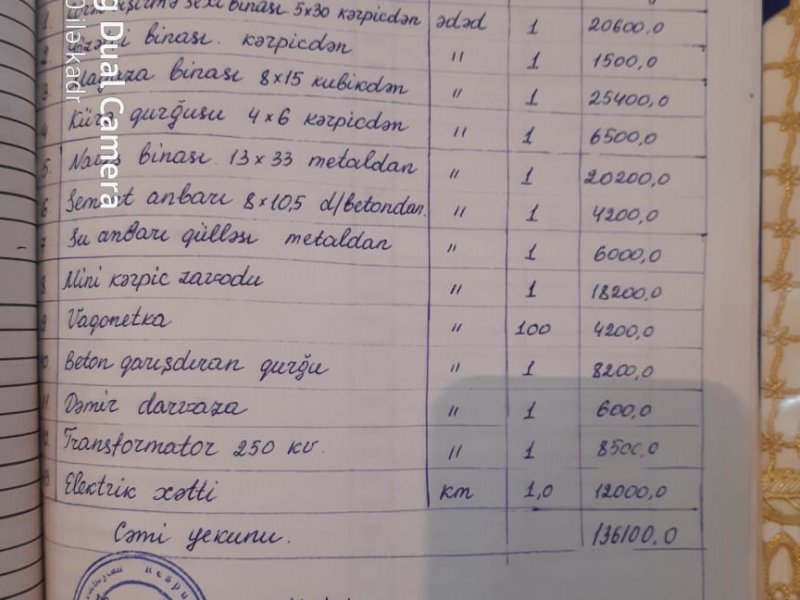 1. binası 5x30 kərpicdən ədəd 1 20600,0
2 binası. kərpicdən " 1 1500,0
3 binası 8x15 kubikdən " 1 25400,0
4 qurğusu 4x6 kərpicdən " 1 6500,0
5. binası. 13x33 metaldan " 1 20200,0
6 Sement anbarı 8x10,5 d/betondan. " 1 4200,0
7 Su anbarı qülləsi metaldan " 1 6000,0
8 Mini kərpic zavodu " 1 18200,0
9 Vaqonetka " 100 4200,0
10 Beton qarışdıran qurğu " 1 8200,0
11. Dəmir darvaza " 1 600,0
12. Transformator 250 kv. " 1 8500,0
13 Elektrik xətti km 1,0 12000,0
Cəmi yekunu. 136100,0
Dual Camera